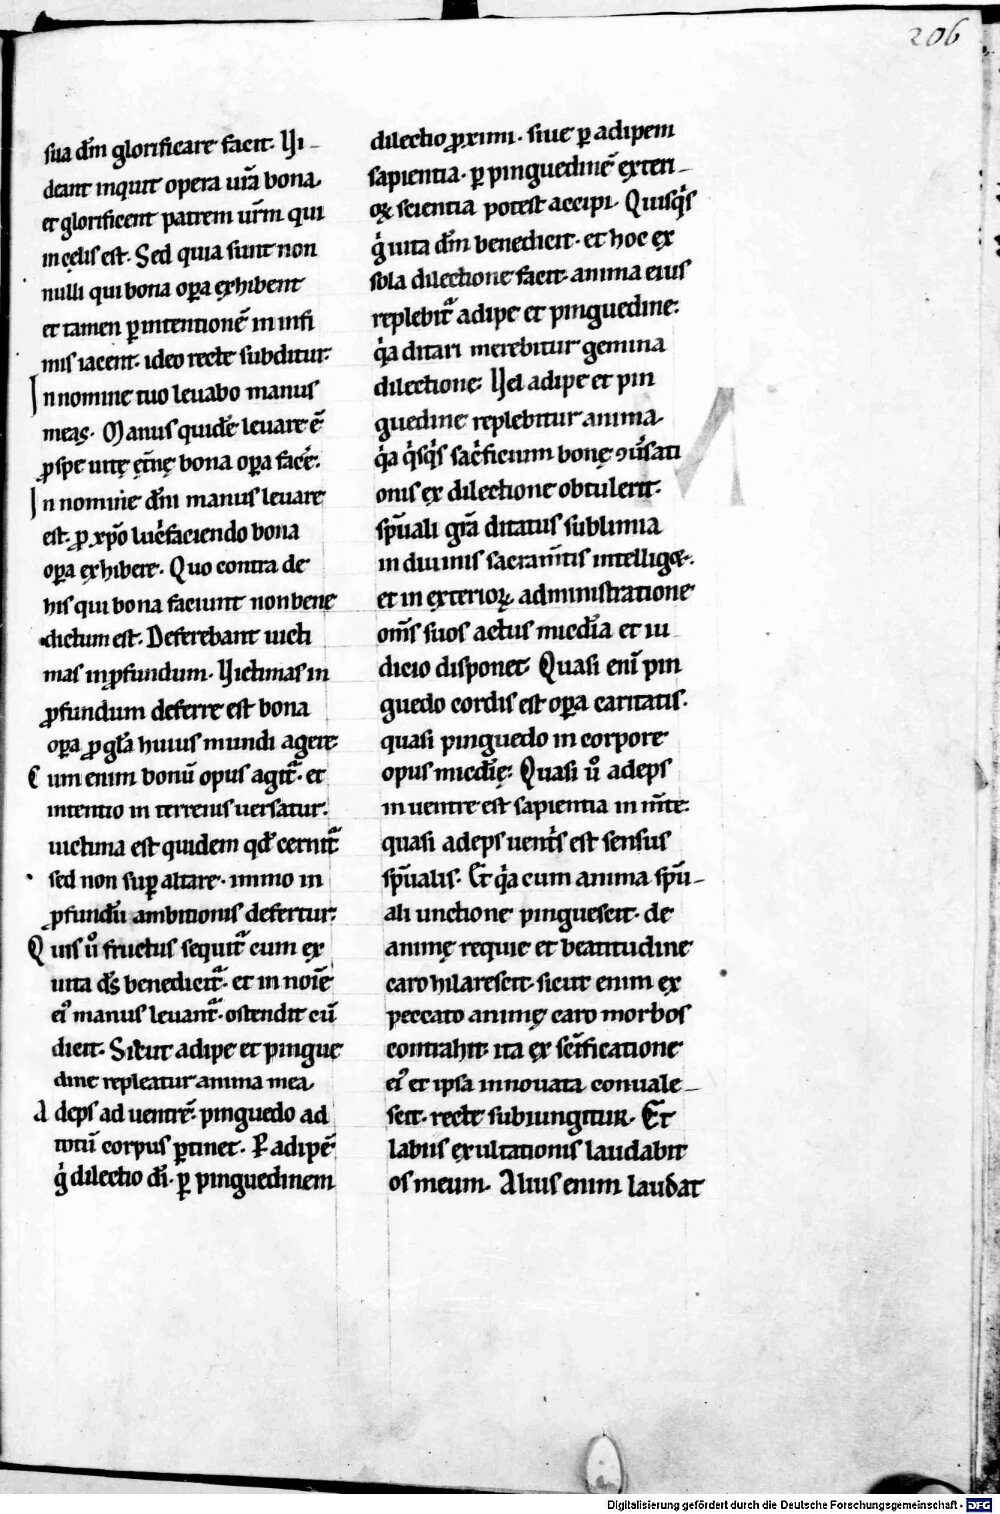 206
sua dm̄ glorificare facit. Vi-
deant inquit opera ur̄a bona.
et glorificent patrem ur̄m qui
in cęlis est. Sed quia sunt non
nulli qui bona oꝑa exhibent
et tamen ꝑ intentionē in infi
mis iacent. ideo recte subditur.
In nomine tuo leuabo manus
meas. Manus quidē leuare ē
ꝓspe uitę ęt̄nę bona oꝑa facere.
In nomine dn̄i manus leuare
est. ꝓ xp̄o lucͥfaciendo bona
oꝑa exhibere. Quo contra de
his qui bona faciunt non bene
dictum est. Deferebant uicti
mas in ꝓfundum. Victimas in
ꝓfundum deferre est bona
oꝑa ꝓ gl̄a huius mundi agere.
Cum enim bonū opus agitᷓ. et
intentio in terrenis uersatur.
uictima est quidem qd̄ cernitᷓ
sed non suꝑ altare. immo in
ꝓfundū ambitionis defertur.
Quis u̾ fructus sequitᷓ cum ex
uita d̄s benedicitᷓ. et in noīe
ei᾽ manus leuantᷓ. ostendit cū
dicit. Sicut adipe et pingue
dine repleatur anima mea
Adeps ad uentrē. pinguedo ad
totū corpus ꝑtinet. Ꝑ adipē
gͥ dilectio dī. ꝑ pinguedinem
dilectio ꝓximi. siue ꝑ adipem
sapientia. ꝑ pinguedinē exteri-
oꝝ scientia potest accipi. Quisqͥs
gͥ uita dm̄ benedicit. et hoc ex
sola dilectione facit. anima eius
replebitᷓ adipe et pinguedine.
qͥa ditari merebitur gemina
dilectione. Vel adipe et pin
guedine replebitur anima.
qͥa qͥsqͥs sacͥficium bonę ꝯuͥsati
onis ex dilectione obtulerit.
sp̄uali gr̄a ditatus sublimia
in diuinis sacram̄tis intelliget.
et in exterioꝝ administratione
om̄s suos actus mic̄dia et iu
dicio disponet. Quasi enī pin
guedo cordis est oꝑa caritatis.
quasi pinguedo in corpore
opus mic̄dię. Quasi u̾ adeps
in uentre est sapientia in m̄te.
quasi adeps uentͥs est sensus
sp̄ualis. Et qͥa cum anima sp̄u-
ali unctione pinguescit. de
animę requie et beatitudine
caro hilarescit. sicut enim ex
peccato animę caro morbos
contrahit. ita ex sc̄ificatione
ei᾽ et ipsa innouata conuale-
scit. recte subiungitur. Et
labiis exultationis laudabit
os meum. Alius enim laudat
Digitalisierung gefördert durch die Deutsche Forschungsgemeinschaft - DFG